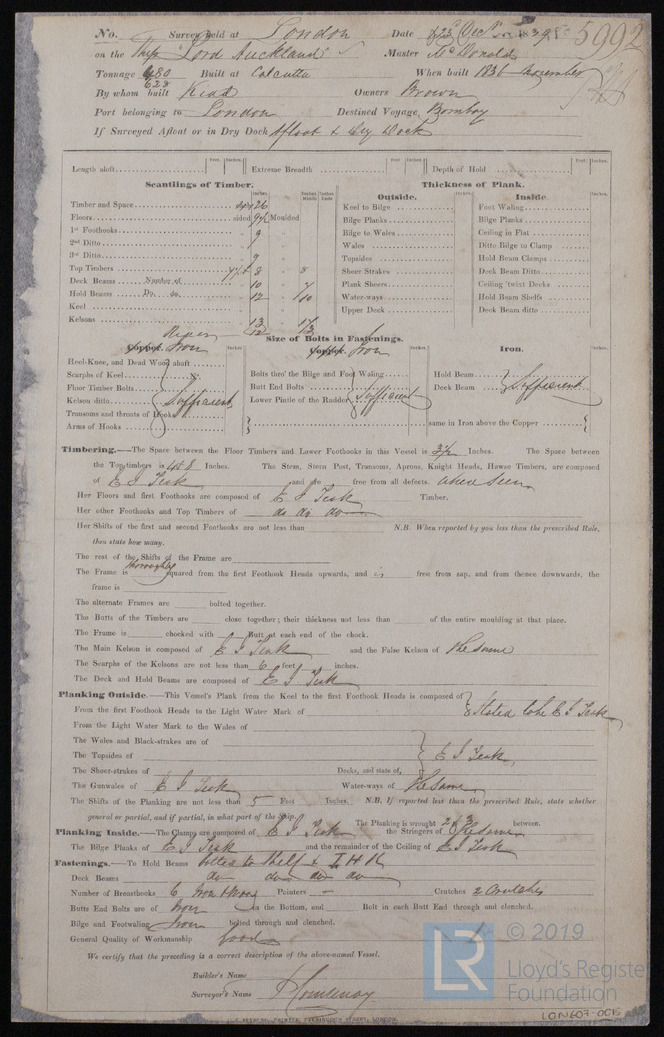 No. Survey held at London Date Decr 1839 5992
on the Ship "Lord Auckland" Master McDonald
Tonnage 628 Built at Calcutta When built 1836 November
By whom built Kidd Owners Brown
Port belonging to London Destined Voyage Bombay
If Surveyed Afloat or in Dry Dock Afloat & Dry Dock
Length aloft Feet. Inches. Extreme Breadth Feet. Inches. Depth of Hold Feet. Inches.
Scantlings of Timber. Thickness of Plank.
Outside. Inside
Timber and Space 26 Keel to Bilge Foot Waling
Floors sided Moulded Bilge Planks Bilge Planks
1st Foothooks 9 Bilge to Wales Ceiling in Flat
2nd Ditto Wales Ditto Bilge to Clamp
3rd Ditto 9 Topsides Hold Beam Clamps
Top Timbers 8 8 Sheer Strakes Deck Beam Ditto
Deck Beams Number of 10 7 Plank Sheers Ceiling 'twixt Decks
Hold Beams Do. do. 12 10 Water-ways Hold Beam Shelfs
Keel Upper Deck Deck Beam ditto
Kelsons 13
Size of Bolts in Fastenings.
Copper. Iron Copper. Iron Iron.
Heel-Knee, and Dead Wood abaft
Scarphs of Keel No. Bolts thro' the Bilge and Foot Waling Hold Beam
Floor Timber Bolts Butt End Bolts Deck Beam Sufficient
Kelson ditto Sufficient Lower Pintle of the Rudder Sufficient
Transoms and throats of Hooks
Arms of Hooks same in Iron above the Copper
Timbering.—The Space between the Floor Timbers and Lower Foothooks in this Vessel is 3½ Inches. The Space between
the Top timbers is 4 to 8 Inches. The Stem, Stern Post, Transoms, Aprons, Knight Heads, Hawse Timbers, are composed
of E I Teak and are free from all defects. when seen
Her Floors and first Foothooks are composed of E I Teak Timber.
Her other Foothooks and Top Timbers of do do do
Her Shifts of the first and second Foothooks are not less than N.B. When reported by you less than the prescribed Rule,
then state how many.
The rest of the Shifts of the Frame are
The Frame is thoroughly squared from the first Foothook Heads upwards, and is free from sap, and from thence downwards, the
frame is
The alternate Frames are bolted together.
The Butts of the Timbers are close together; their thickness not less than of the entire moulding at that place.
The Frame is chocked with Butt at each end of the chock.
The Main Kelson is composed of E I Teak and the False Kelson of the same
The Scarphs of the Kelsons are not less than 6 feet inches.
The Deck and Hold Beams are composed of E I Teak
Planking Outside.—This Vessel's Plank from the Keel to the first Foothook Heads is composed of
From the first Foothook Heads to the Light Water Mark of Stated to be E I Teak
From the Light Water Mark to the Wales of
The Wales and Black-strakes are of
The Topsides of E I Teak
The Sheer-strakes of Decks, and state of,
The Gunwales of E I Teak Water-ways of the same
The Shifts of the Planking are not less than 5 Feet Inches. N.B. If reported less than the prescribed Rule, state whether
general or partial, and if partial, in what part of the Ship. The Planking is wrought 2 & 3 between.
Planking Inside.—The Clamps are composed of E I Teak the Stringers of the same
The Bilge Planks of E I Teak and the remainder of the Ceiling of E I Teak
Fastenings.—To Hold Beams bolted to Shelf & I H K
Deck Beams do do do do
Number of Breasthooks 6 Iron & Wood Pointers — Crutches 2 Crutches
Butts End Bolts are of Iron in the Bottom, and Bolt in each Butt End through and clenched.
Bilge and Footwaling Iron bolted through and clenched.
General Quality of Workmanship Good
We certify that the preceding is a correct description of the above-named Vessel.
Builder's Name
Surveyor's Name
© 2019
LR Lloyd's Register
Foundation
LON607-0015